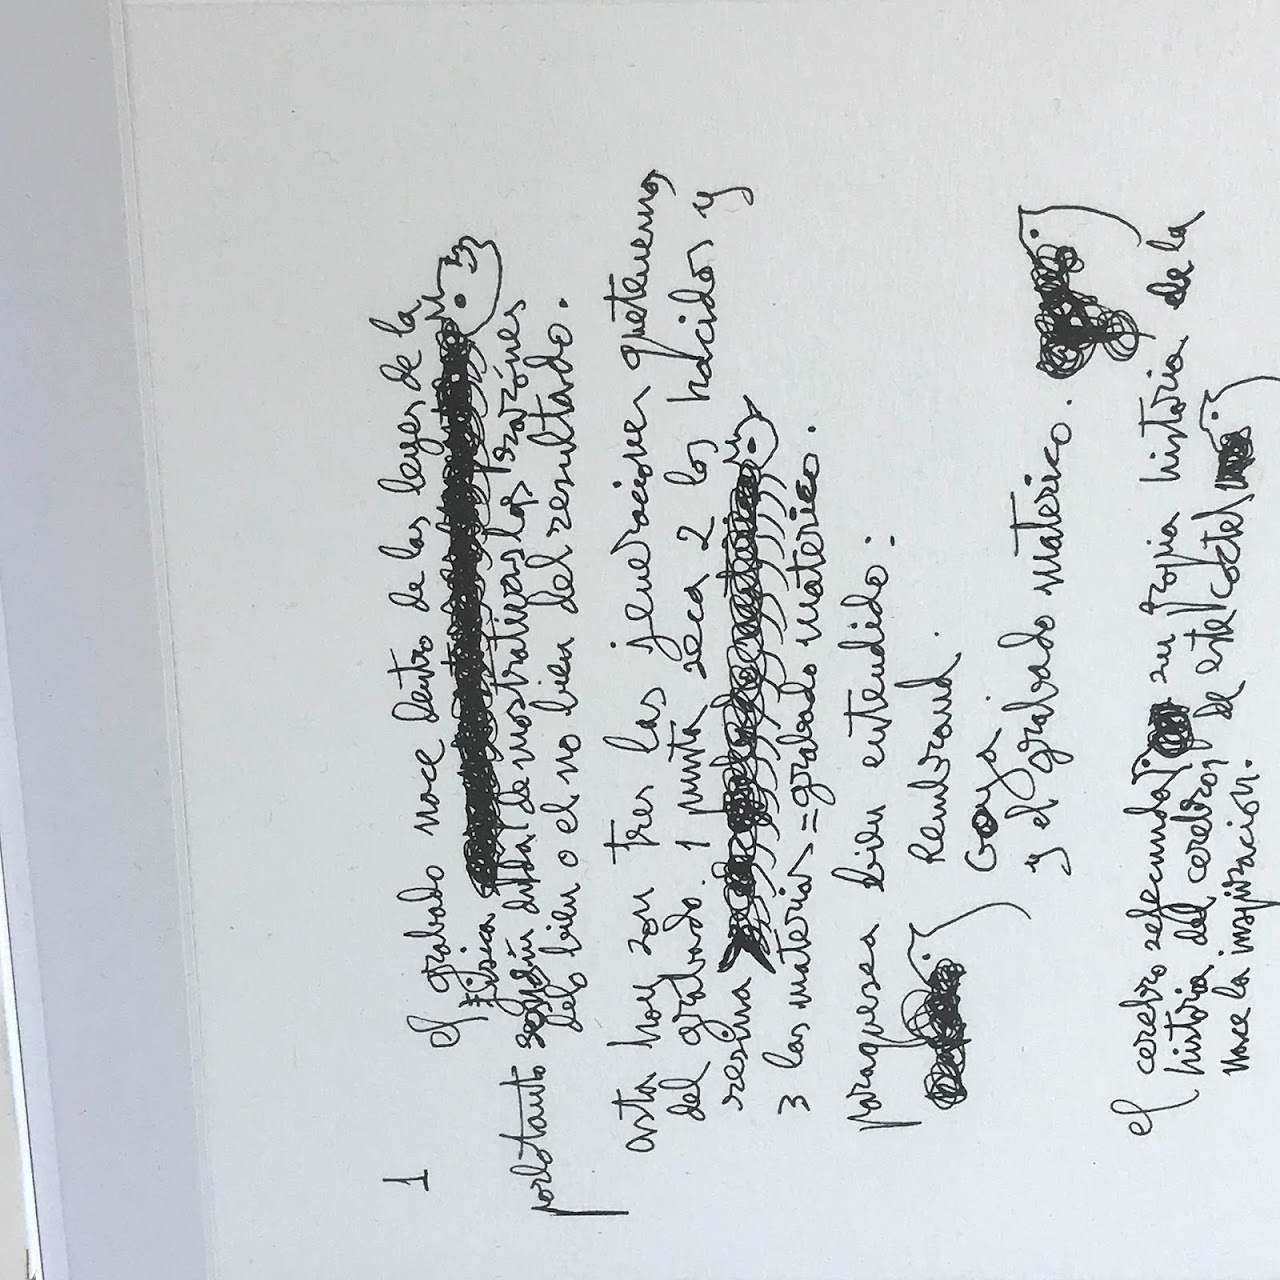 1
el grabado nace dentro de las leyes de la
fisica
porlotanto según demostrativas las razónes
delo bien o el no bien del resultado.
asta hoy son tres las jeneraciones quetenemos
del grabado. 1 punta seca 2 los hacidos y
resina
3 las materias = grabado materico.
paraquesea bien entendido:
Rembrand.
Goya
y el grabado materico.
el cerebro sefecunda su propia historia de la
historia del cerebro, de este coctel
nace la inspiracion.